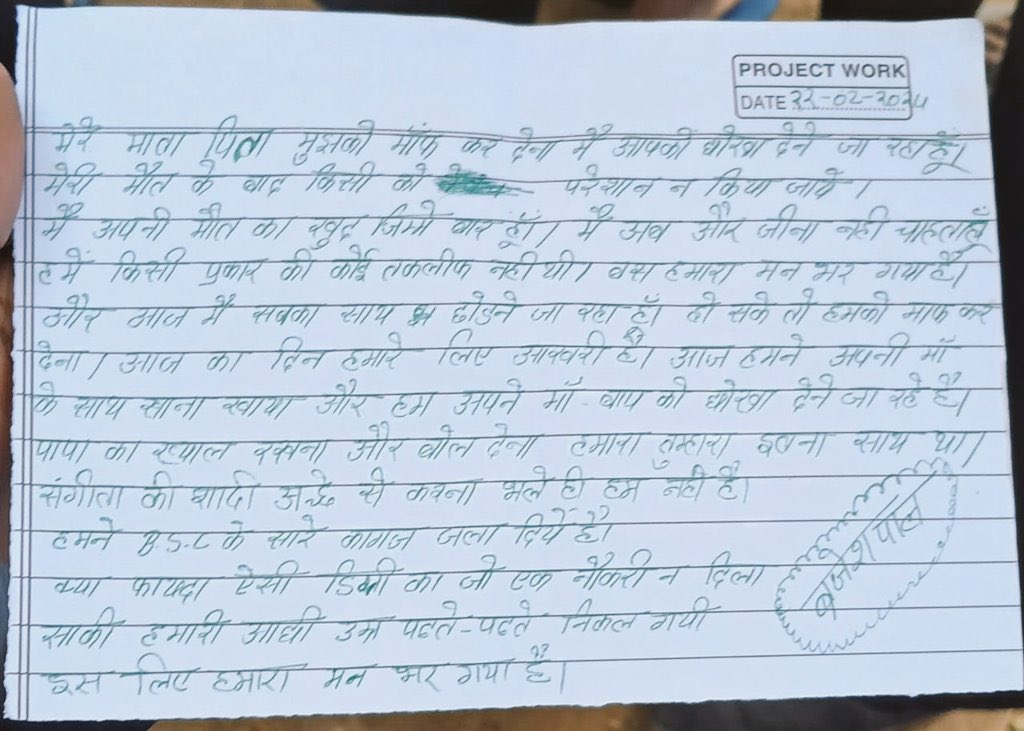 PROJECT WORK
DATE 22-02-2024
मेरे माता पिता मुझको माँफ कर देना मै आपको धोखा देने जा रहा हूँ।
मेरी मौत के बाद किसी को परेशान न किया जाये।
मै अपनी मौत का खुद जिम्मे वार हूँ। मै अब और जीना नही चाहता हूँ
हमें किसी प्रकार की कोई तकलीफ नही थी। बस हमारा मन भर गया है।
और आज मै सबका साथ छोडने जा रहा हूँ। हो सके तो हमको माफ कर
देना। आज का दिन हमारे लिए आखरी है। आज हमने अपनी माँ
के साथ खाना खाया और हम अपने माँ-बाप को धोखा देने जा रहे है।
पापा का ख्याल रखना और बोल देना हमारा तुम्हारा इतना साथ था।
संगीता की शादी अच्छे से करना भले ही हम नही है।
हमने B.S.C के सारे कागज जला दिये है।
क्या फायदा ऐसी डिग्री का जो एक नौकरी न दिला
साकी हमारी आधी उम्र पढते-पढते निकल गयी
इस लिए हमारा मन भर गया है।
बृजेश पाल